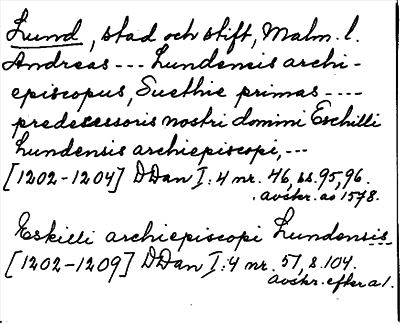 Lund, stad och stift, Malm. l.
Andreas --- Lundensis archi-
episcopus, Suethie primas ----
predecessoris nostri domini Eschilli
Lundensis archiepiscopi, ---
[1202-1204] DDan I:4 nr. 46, ss. 95, 96.
avskr. ao 1578.
Eskilli archiepiscopi Lundensis
[1202-1209] DDan I:4 nr. 57, s. 104.
avskr. efter a 1.